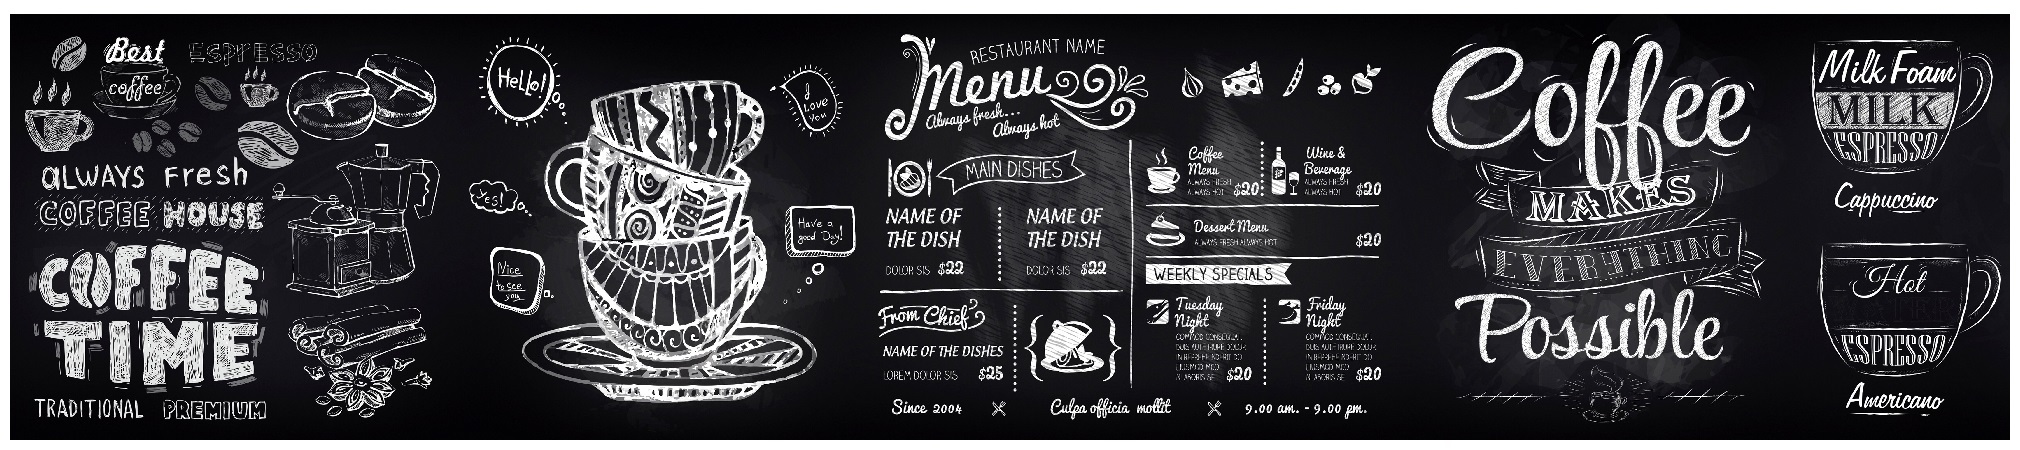 Best
coffee
ESPRESSO
ALWAYS Fresh
COFFEE HOUSE
COFFEE
TIME
TRADITIONAL PREMIUM
Hello!
I
Love
You
Yes!
Have a
good Day!
Nice
to see
you
RESTAURANT NAME
Menu
Always fresh...
Always hot
MAIN DISHES
NAME OF
THE DISH
DOLOR SIS $22
NAME OF
THE DISH
DOLOR SIS $22
From Chief
NAME OF THE DISHES
LOREM DOLOR SIS $25
Coffee
Menu
ALWAYS FRESH
ALWAYS HOT $20
Wine &
Beverage
ALWAYS FRESH
ALWAYS HOT $20
Dessert Menu
ALWAYS FRESH ALWAYS HOT $20
WEEKLY SPECIALS
Tuesday
Night
$20
Friday
Night
$20
Since 2004
Culpa officia mollit
9.00 am. - 9.00 pm.
Coffee
MAKES
EVERYTHING
Possible
Milk Foam
MILK
ESPRESSO
Cappuccino
Hot
ESPRESSO
Americano